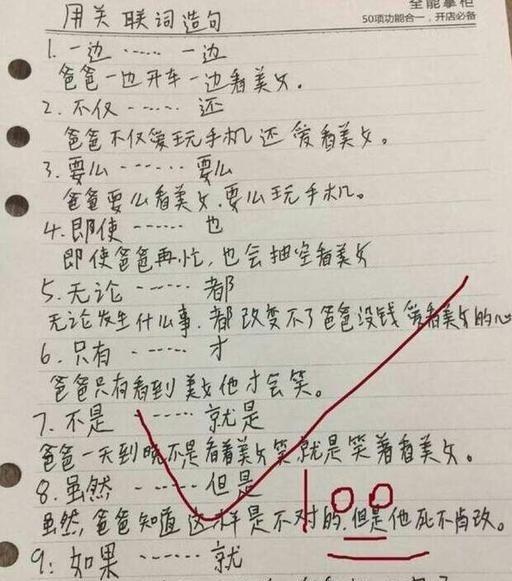 全能掌柜
50项功能合一，开店必备
用关联词造句
1. 一边 ······ 一边
爸爸一边开车一边看美女.
2. 不仅 ······ 还
爸爸不仅爱玩手机还爱看美女。
3. 要么 ······ 要么
爸爸要么看美女.要么玩手机。
4. 即使 ······ 也
即使爸爸再忙, 也会抽空看美女
5. 无论 ······ 都
无论发生什么事. 都改变不了爸爸没钱爱看美女的心
6. 只有 ······ 才
爸爸只有看到美女他才会笑。
7. 不是 ······ 就是
爸爸一天到晚不是看着美女笑就是笑着看美女。
8. 虽然 ······ 但是
虽然, 爸爸知道这样是不对的, 但是他死不肯改。
100
9: 如果 ······ 就